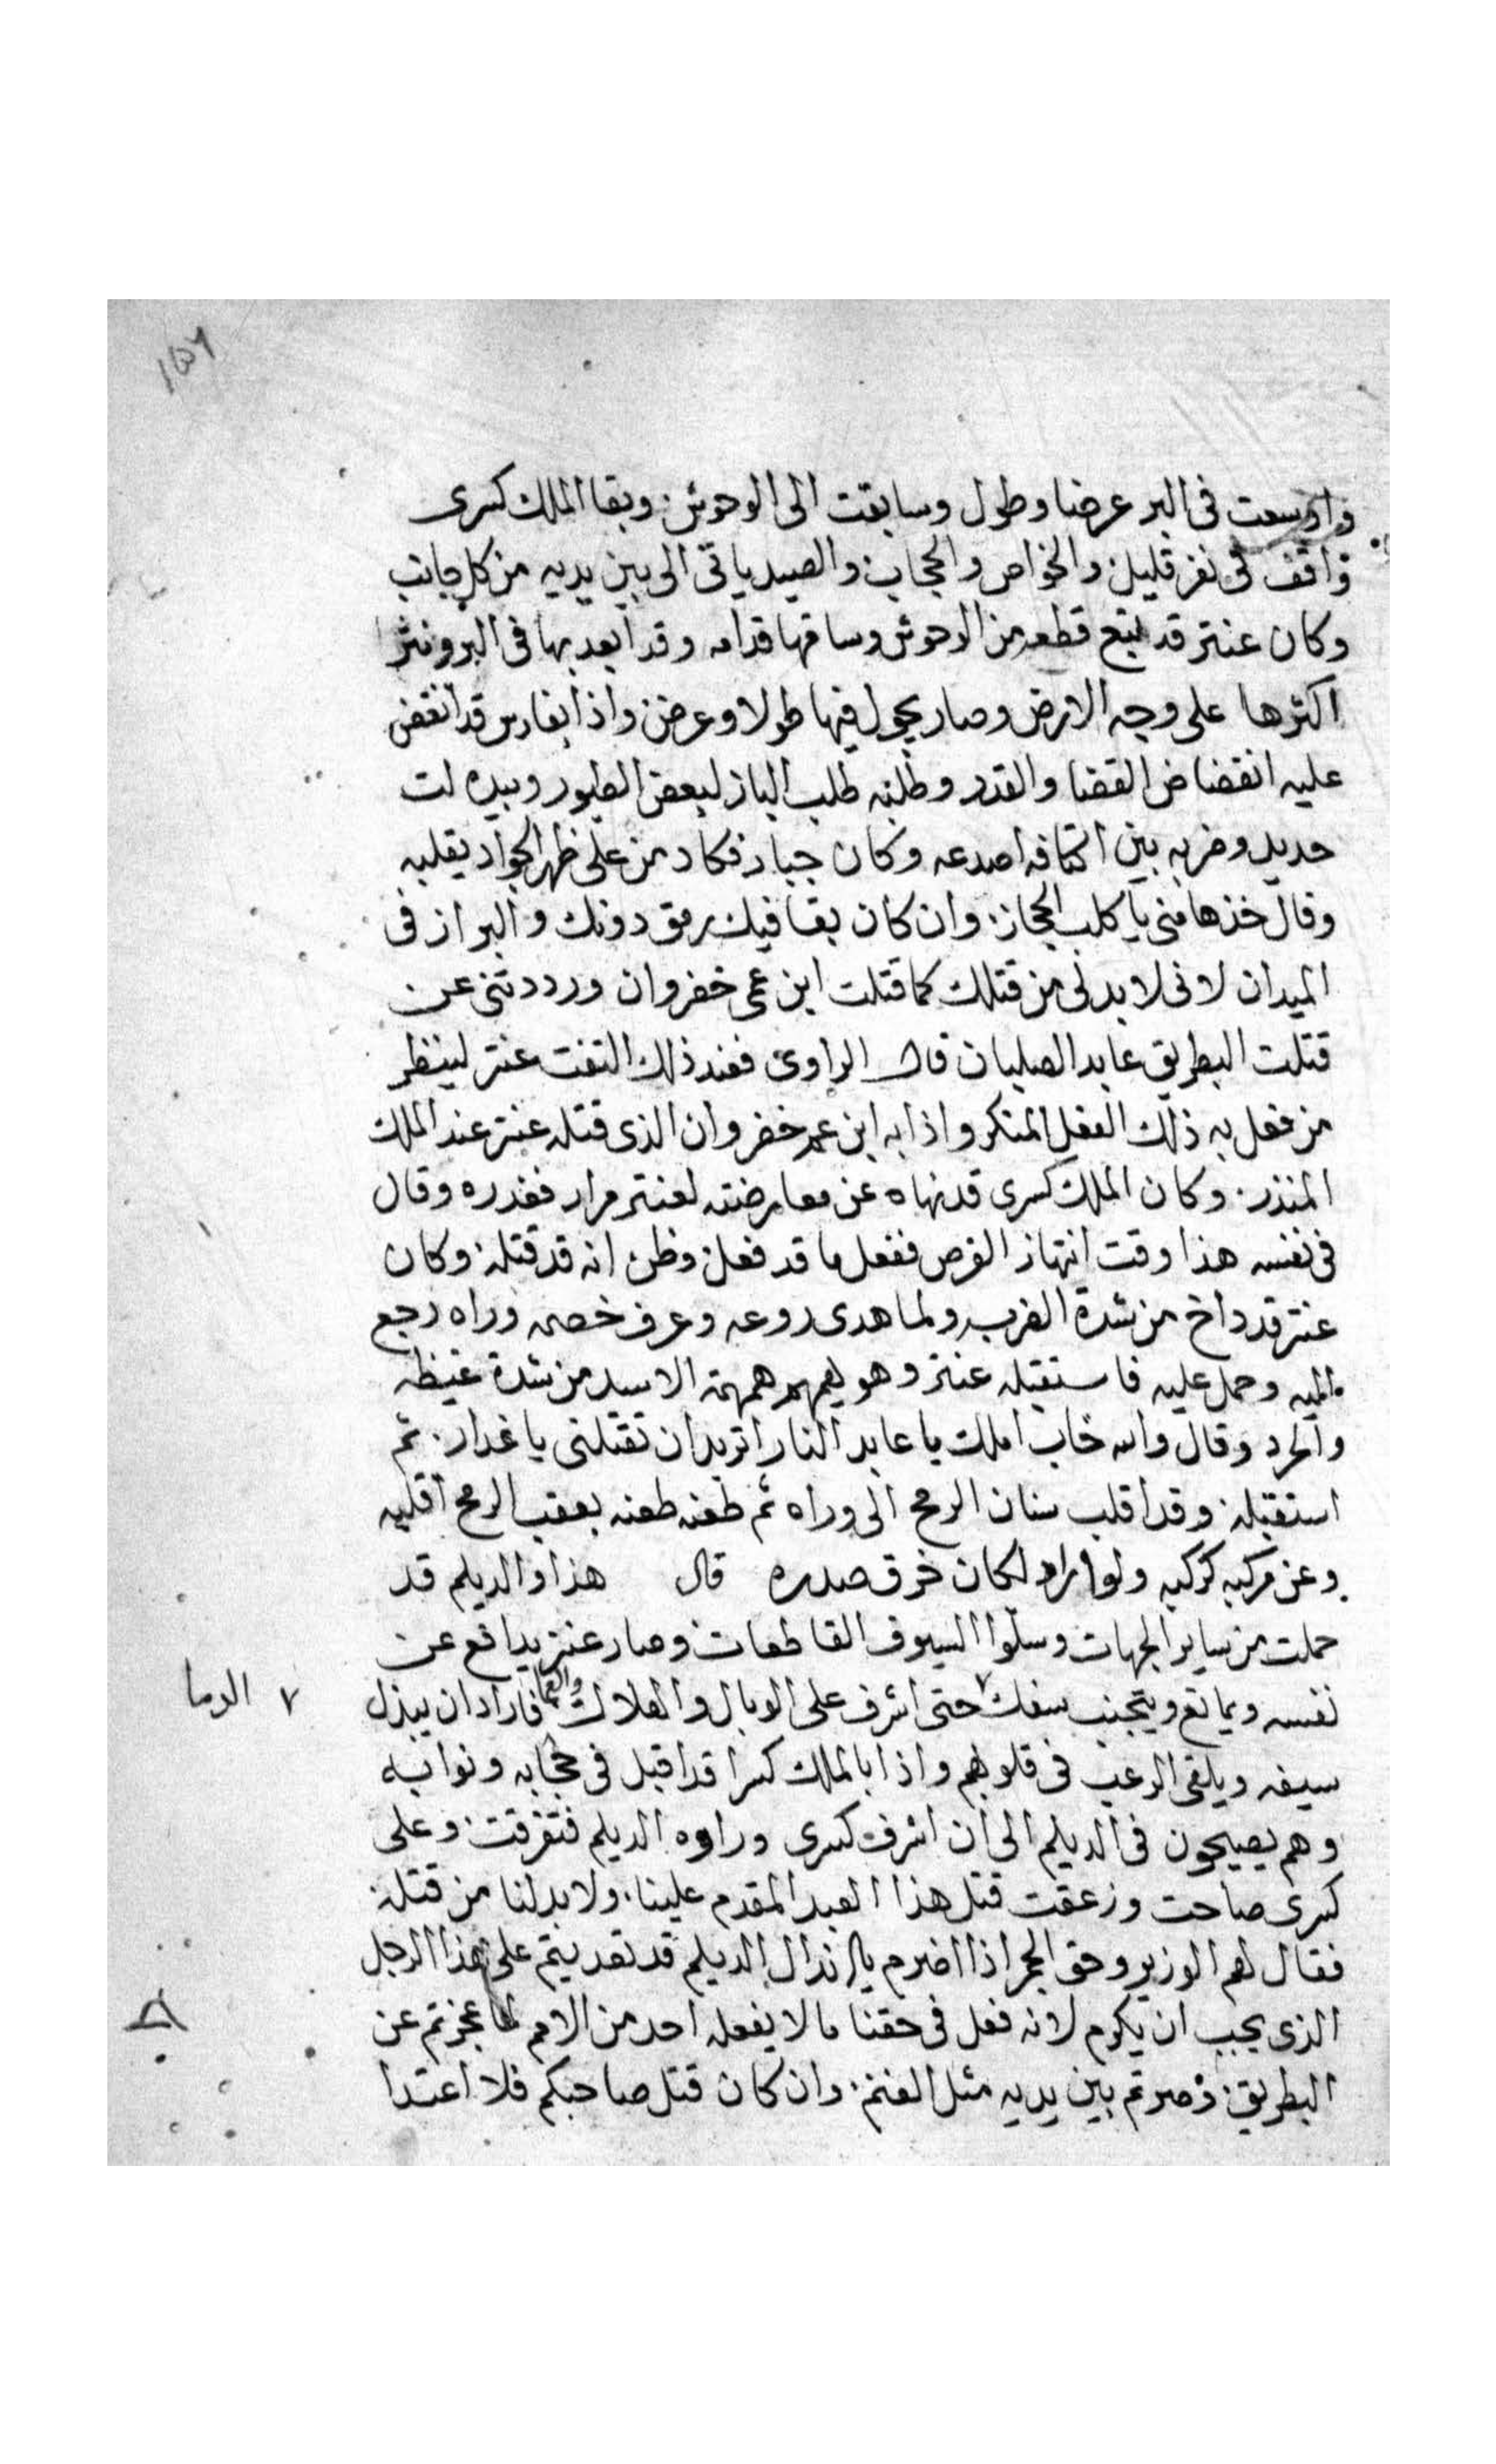 واوسعت فى البر عرضا وطول وسابقت الى الوحوش وبقا الملك كسرى
واقف فى نفر قليل والخواص والحجاب والصيد ياتى الى بين يديه من كل جانب
وكان عنتر قد تبع قطعه من الوحوش وساقها قدامه وقد ابعد بها فى البر ونثر
اكثرها على وجه الارض وصار يجول فيها طولا وعرض واذا بفارس قد انقض
عليه انقضاض القضا والقدر وطلبه طلب الباز لبعض الطيور وبيده لت
حديد وضربه بين اكتافه اصدعه وكان جبار فكاد من على ظهر الجواد يقلبه
وقال خذها منى يا كلب الحجاز وان كان بقا فيك رمق دونك والبراز فى
الميدان لانى لا بد لى من قتلك كما قتلت ابن عمى خفروان ورددتنى عن
قتلت البطريق عابد الصلبان قال الراوى فعند ذلك التفت عنتر لينظر
من فعل به ذلك الفعل المنكر واذا به ابن عم خفروان الذى قتله عنتر عند الملك
المنذر وكان الملك كسرى قد نهاه عن معارضته لعنتر مرار فغدره وقال
فى نفسه هذا وقت انتهاز الفرص ففعل ما قد فعل وظن انه قد قتله وكان
عنتر قد داخ من شدة الضرب ولما هدى روعه وعرف خصمه وراه رجع
اليه وحمل عليه فاستقبله عنتر وهو يهمهم همهمة الاسد من شدة غيظه
والحرد وقال والله خاب املك يا عابد النار اتريد ان تقتلنى يا غدار ثم
استقبله وقد اقلب سنان الرمح الى وراه ثم طعنه طعنه بعقب الرمح اقلبه
وعن مركبه كركبه ولو اراد لكان خرق صدره قال هذا والديلم قد
حملت من ساير الجهات وسلوا السيوف القاطعات وصار عنتر يدافع عن
نفسه ويمانع ويتجنب سفك ٧ حتى اشرف على الوبال والهلاك فاراد ان يبذل
٧ الدما
سيفه ويلقى الرعب فى قلوبهم واذا بالملك كسرا قد اقبل فى حجابه ونوابه
وهم يصيحون فى الديلم الى ان اشرف كسرى وراوه الديلم فتفرقت وعلى
كسرى صاحت وزعقت قتل هذا العبد المقدم علينا ولا بد لنا من قتله
فقال لهم الوزير وحق الجمر اذا اضرم يا اندال الديلم قد تعديتم على هذا الرجل
الذى يجب ان يكرم لانه فعل فى حقنا ما لا يفعله احد من الامم لما عجزتم عن
البطريق وصرتم بين يديه مثل الغنم وان كان قتل صاحبكم فلا اعتدا